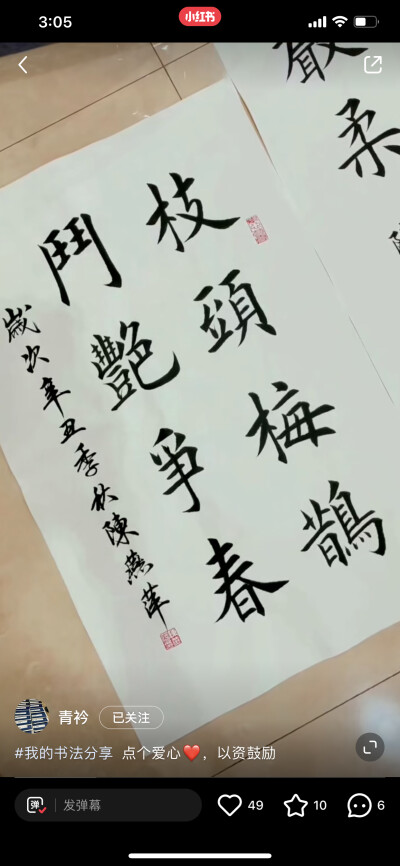 3:05
小红书
枝頭梅鵲
鬥艷爭春
歲次辛丑季秋陳燕萍
柔
青衿
已关注
#我的书法分享 点个爱心❤️，以资鼓励
弹
发弹幕
49
10
6